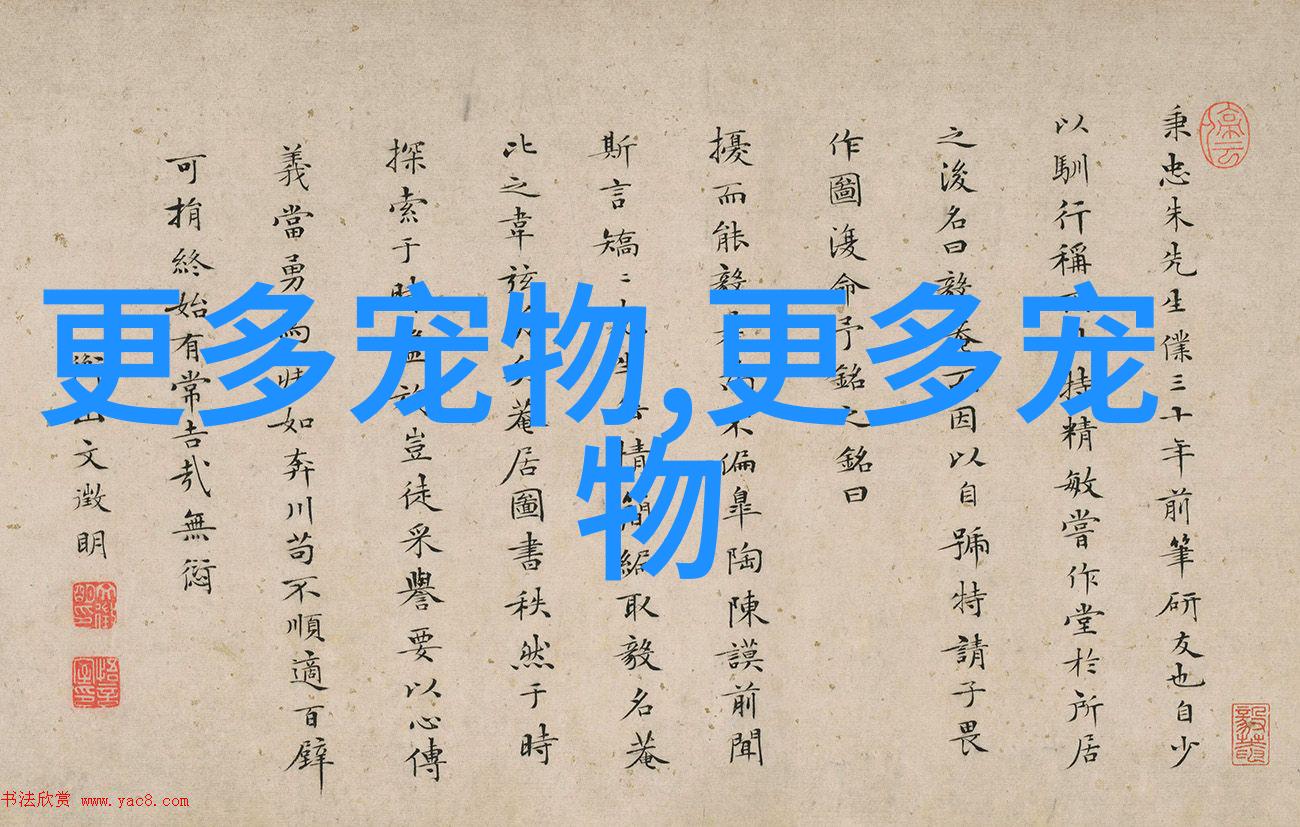 更多宠物,更多宠
物
停云
秉忠朱先生僕三十年前筆研友也自少
以馴行稱持精敏嘗作堂於所居
之後名曰毅菴因以自號特請子畏
作圖復命予銘之銘曰
擾而能毅不偏皐陶陳謨前聞
斯言矯〻情簡絕取毅名菴
比之韋弦菴居圖書秩然于時
探索于豈徒采譽要以心傳
義當勇為如奔川苟不順適百嬖
可捐終始有常吉哉無愆
山文徵明
书法欣赏 www.yac8.com